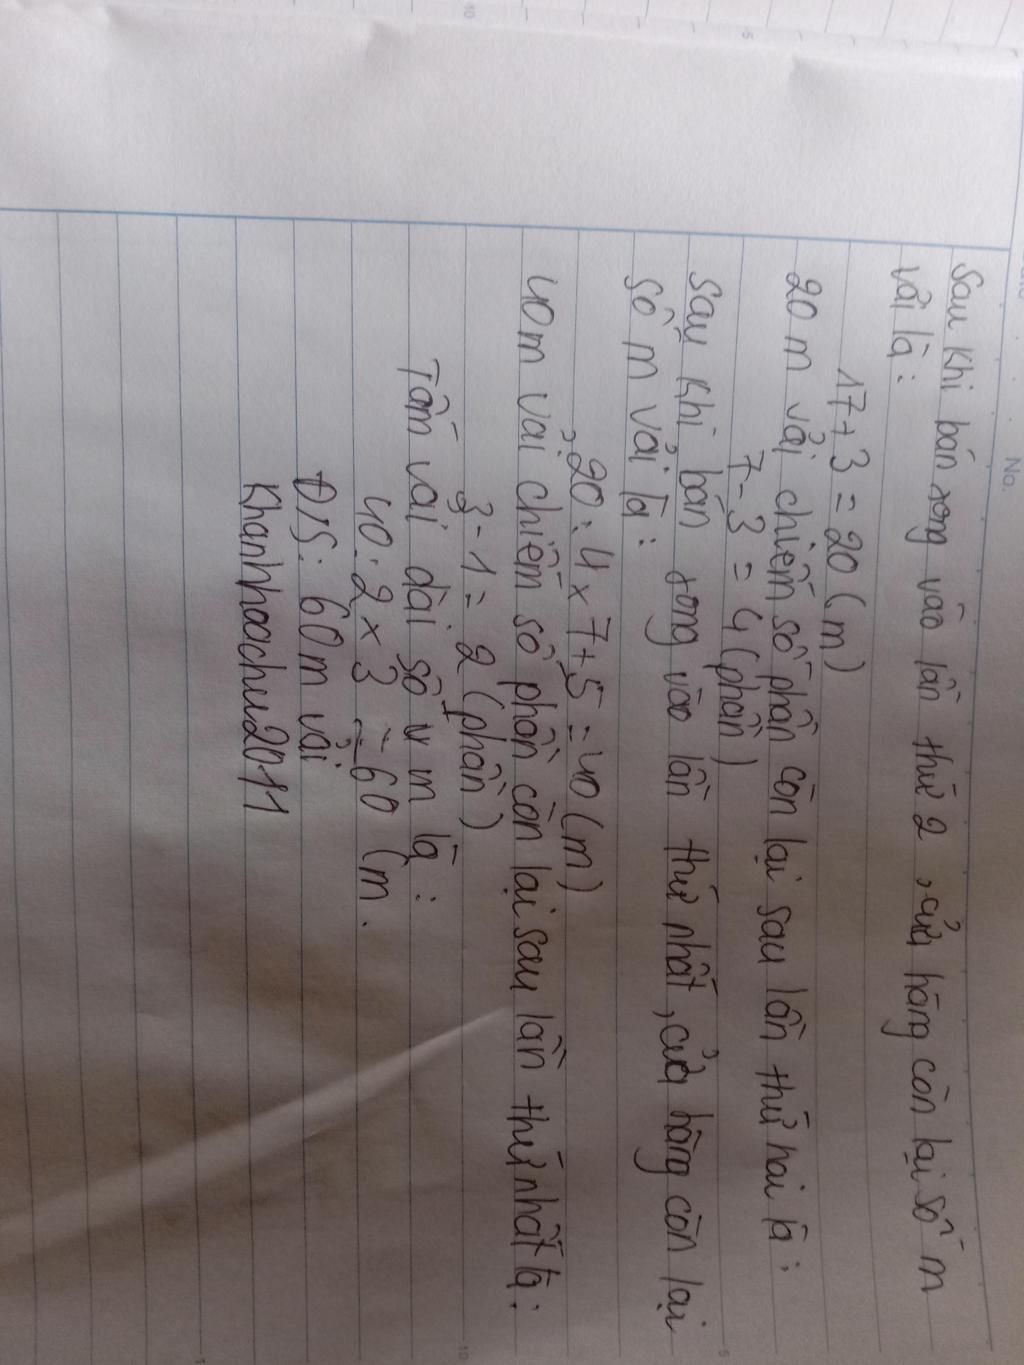 No.
Sau khi bán xong vào lần thứ 2, cửa hàng còn lại số m
vải là:
17+3 = 20 (m)
20 m vải chiếm số phần còn lại sau lần thứ hai là:
7-3 = 4 (phần)
Sau khi bán xong vào lần thứ nhất, cửa hàng còn lại
số m vải là:
20:4x7+5 = 40 (m)
40m vải chiếm số phần còn lại sau lần thứ nhất là:
3-1 = 2 (phần)
Tấm vải dài số m là:
40:2x3 = 60 (m.
Đ/S: 60m vải
Khanhhoachu2011